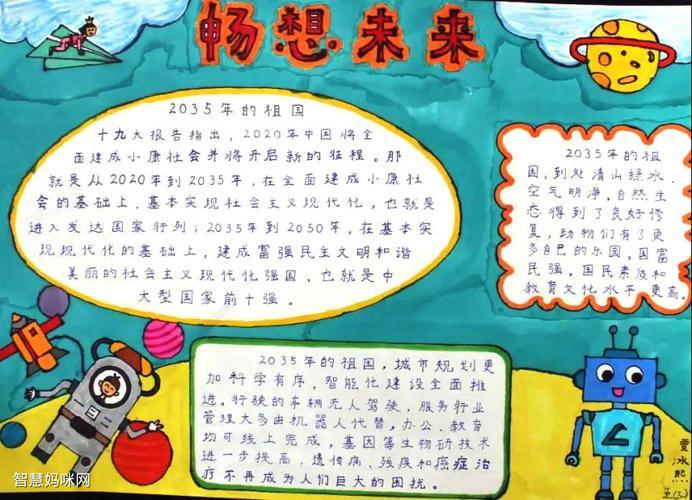 畅想未来
2035年的祖国
十九大报告指出，2020年中国将全
面建成小康社会并将开启新的征程。那
就是从2020年到2035年，在全面建成小康社
会的基础上，基本实现社会主义现代化，也就是
进入发达国家行列；2035年到2050年，在基本实
现现代化的基础上，建成富强民主文明和谐
美丽的社会主义现代化强国，也就是中
大型国家前十强。
2035年的祖
国，到处清山绿水，
空气明净，自然生
态得到了良好修
复，动物们有了更
多自己的乐园，国富
民强，国民素质和
教育文化水平更高。
2035年的祖国，城市规划更
加科学有序，智能化建设全面推
进，行驶的车辆无人驾驶，服务行业
管理大多由机器人代替，办公、教育
均可线上完成，基因等生物研技术
进一步提高，遗传病、残疾和癌症治
疗不再成为人们巨大的困扰。
智慧妈咪网